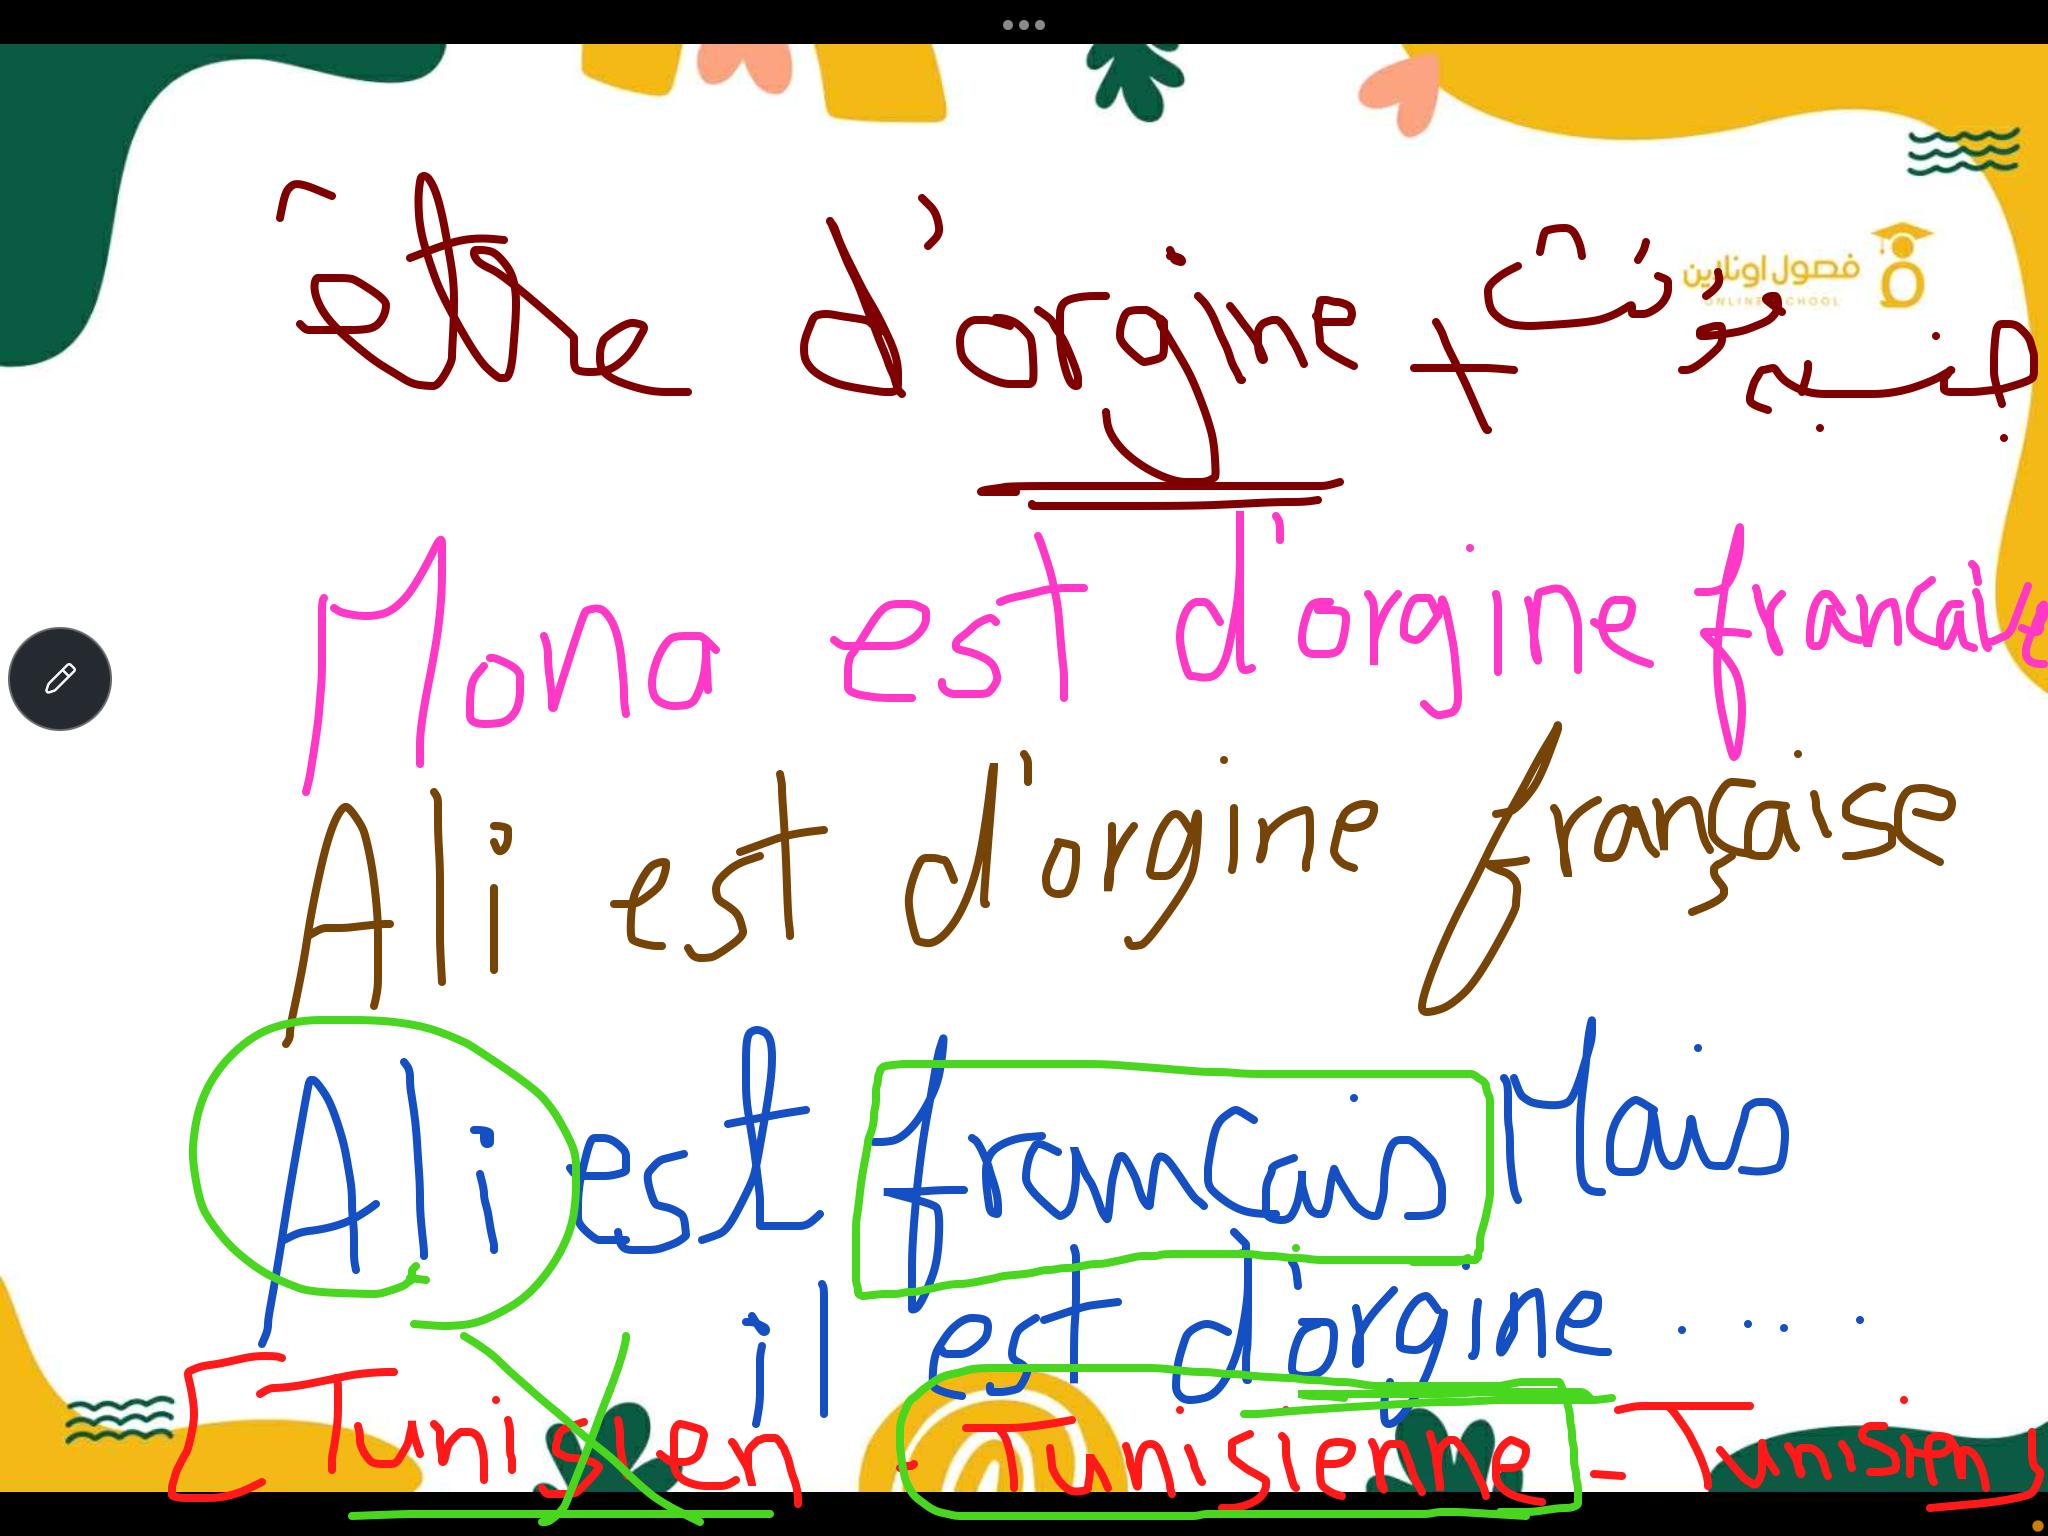 être d'orgine + جنسية مؤنث
فصول اونلاين
ONLINE SCHOOL
Mona est d'orgine francaise
Ali est d'orgine française
Ali est francais Mais
il est d'orgine .....
[Tunisien - Tunisienne - Tunisien]